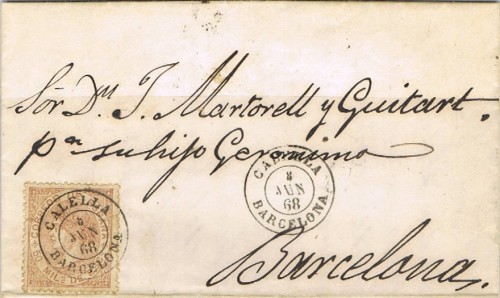 Sor Dn J. Martorell y Guitart.
pa su hijo Geronimo
Barcelona.
CALELLA
8
JUN
68
BARCELONA
CALELLA
8
JUN
68
BARCELONA
CORREOS
50 MILS DE